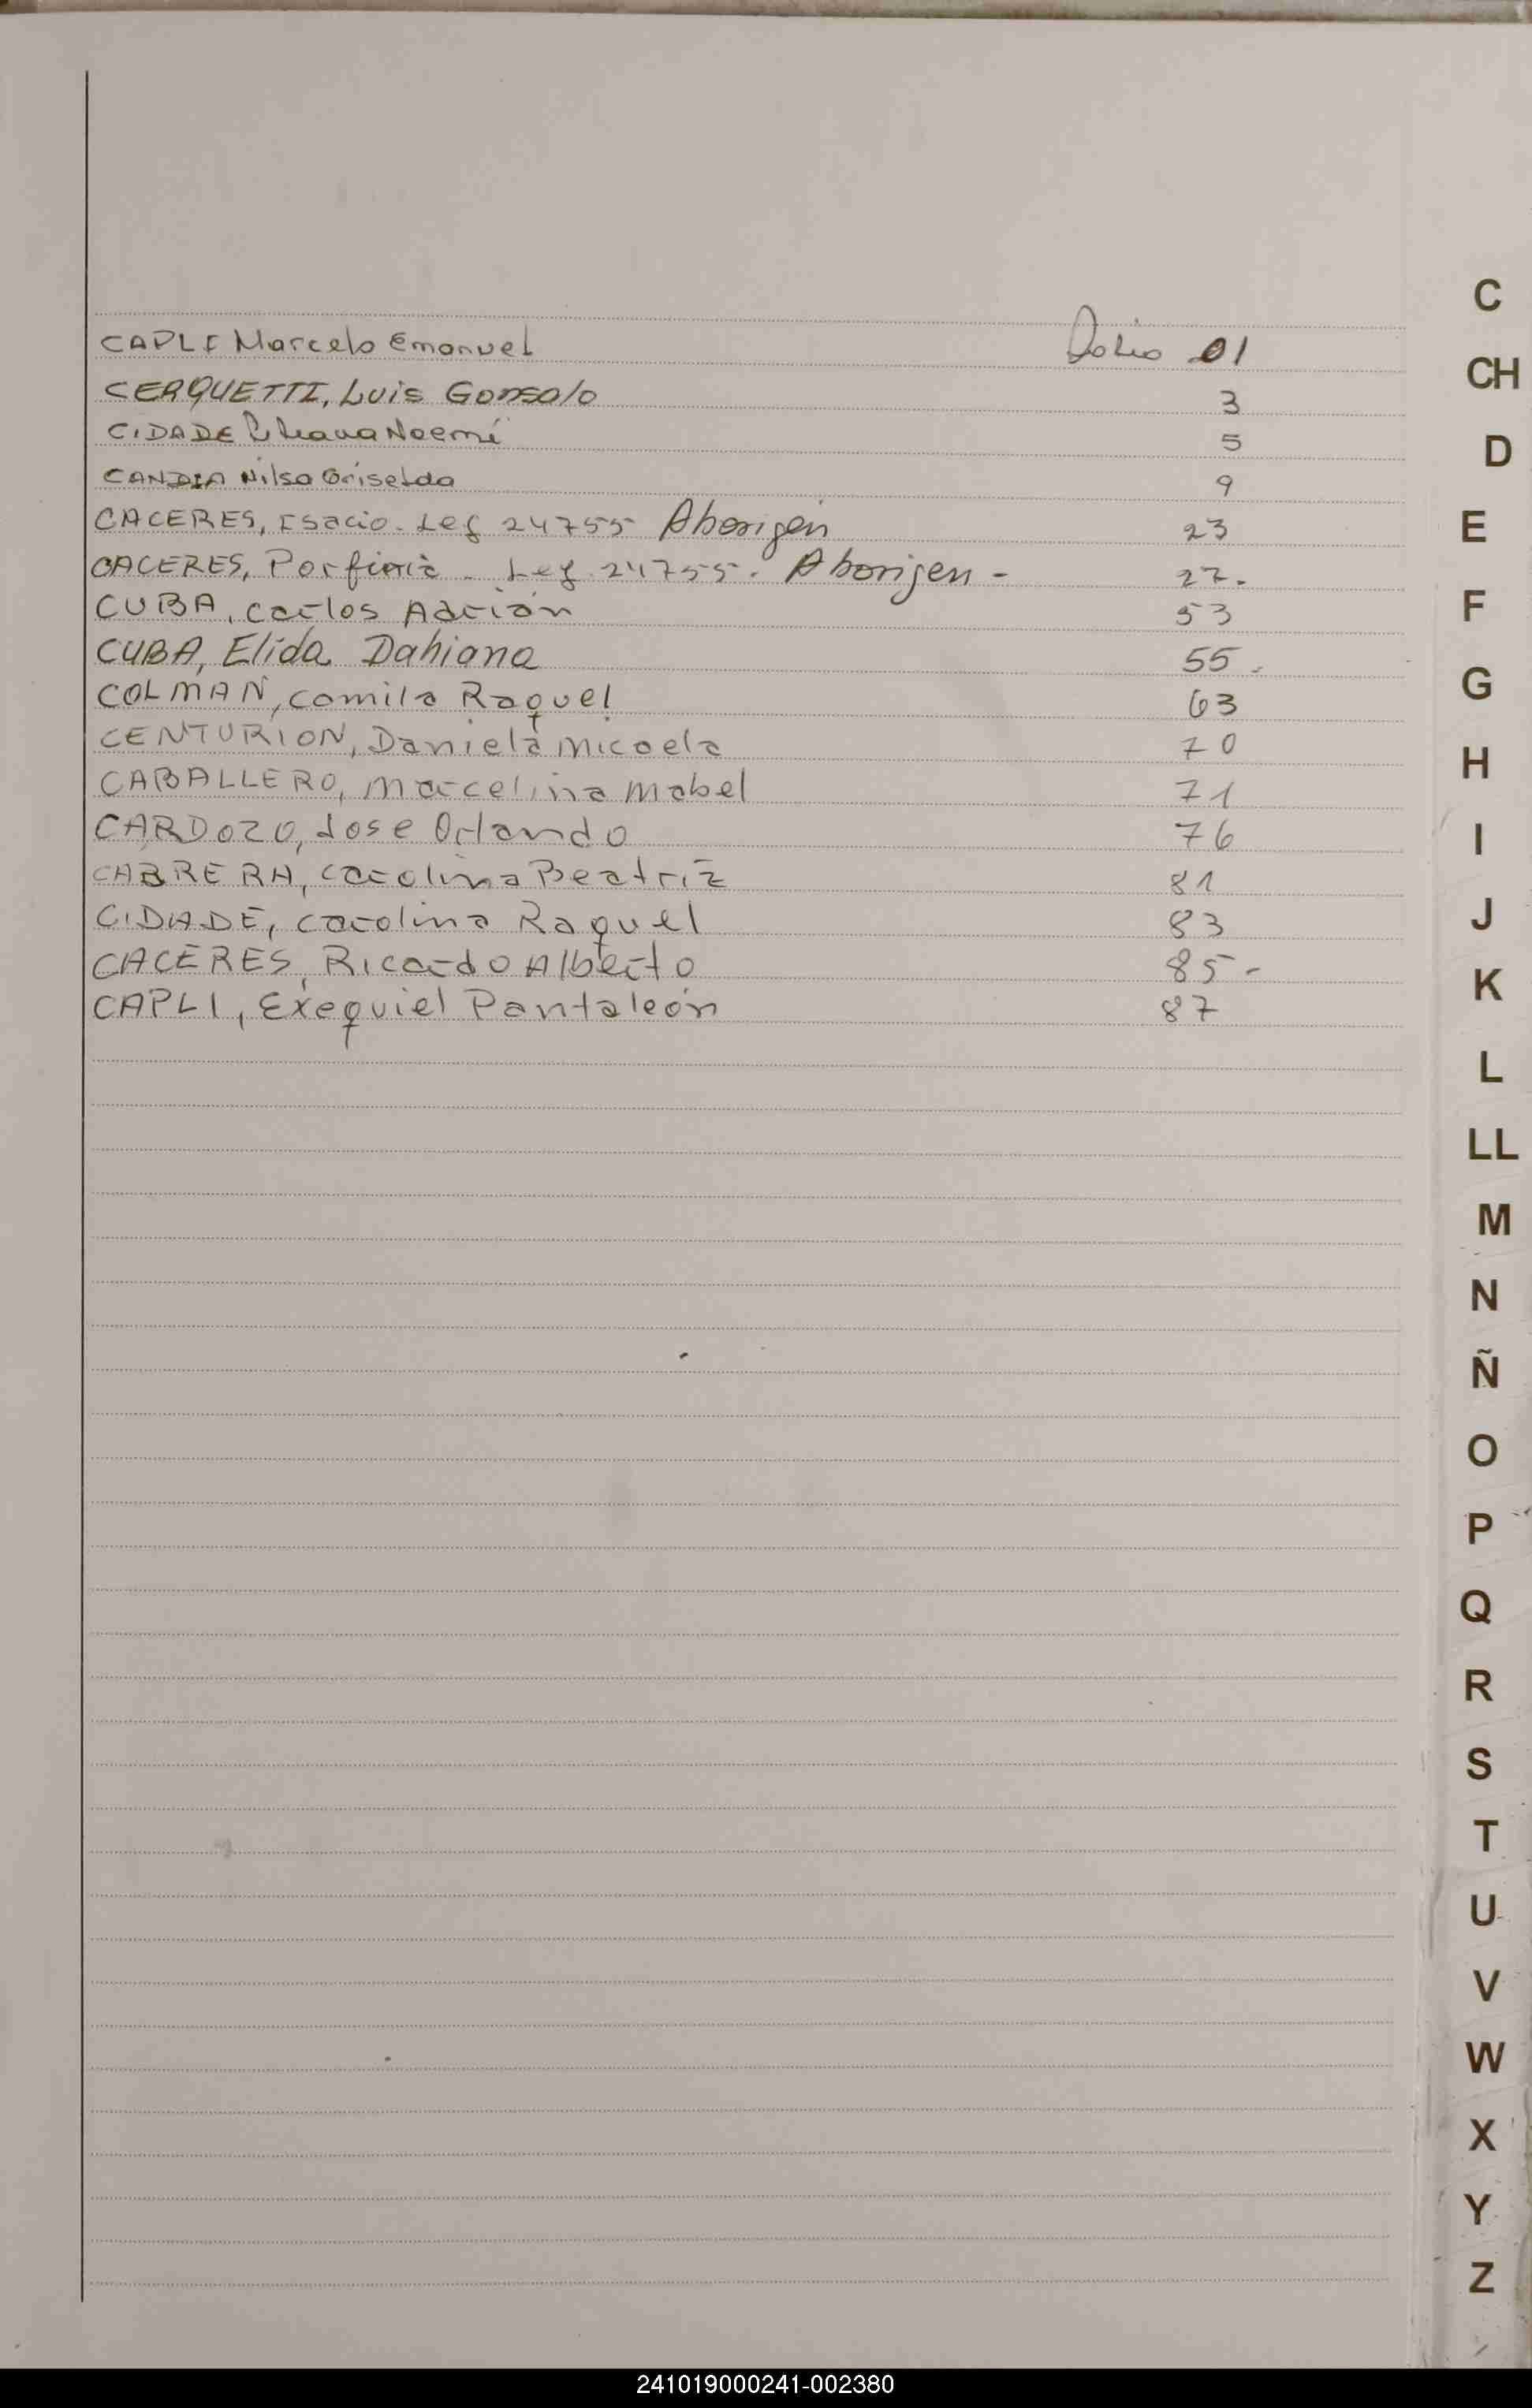 CAPLI Marcelo Emanuel Folio 01
CERQUETTI, Luis Gonsalo 3
CIDADE Liliana Noemí 5
CANDIA Nilsa Griselda 9
CACERES, Isacio. Ley 24755 Aborigen 23
CACERES, Porfirio - Ley 24755. Aborigen - 27.
CUBA, Carlos Adrián 53
CUBA, Elida Dahiana 55.
COLMAN, Camila Raquel 63
CENTURION, Daniela Micaela 70
CABALLERO, Marcelina Mabel 71
CARDOZO, Jose Orlando 76
CABRERA, Carolina Beatriz 81
CIDADE, Carolina Raquel 83
CACERES, Ricardo Alberto 85-
CAPLI, Exequiel Pantaleón 87
C
CH
D
E
F
G
H
I
J
K
L
LL
M
N
Ñ
O
P
Q
R
S
T
U
V
W
X
Y
Z
241019000241-002380